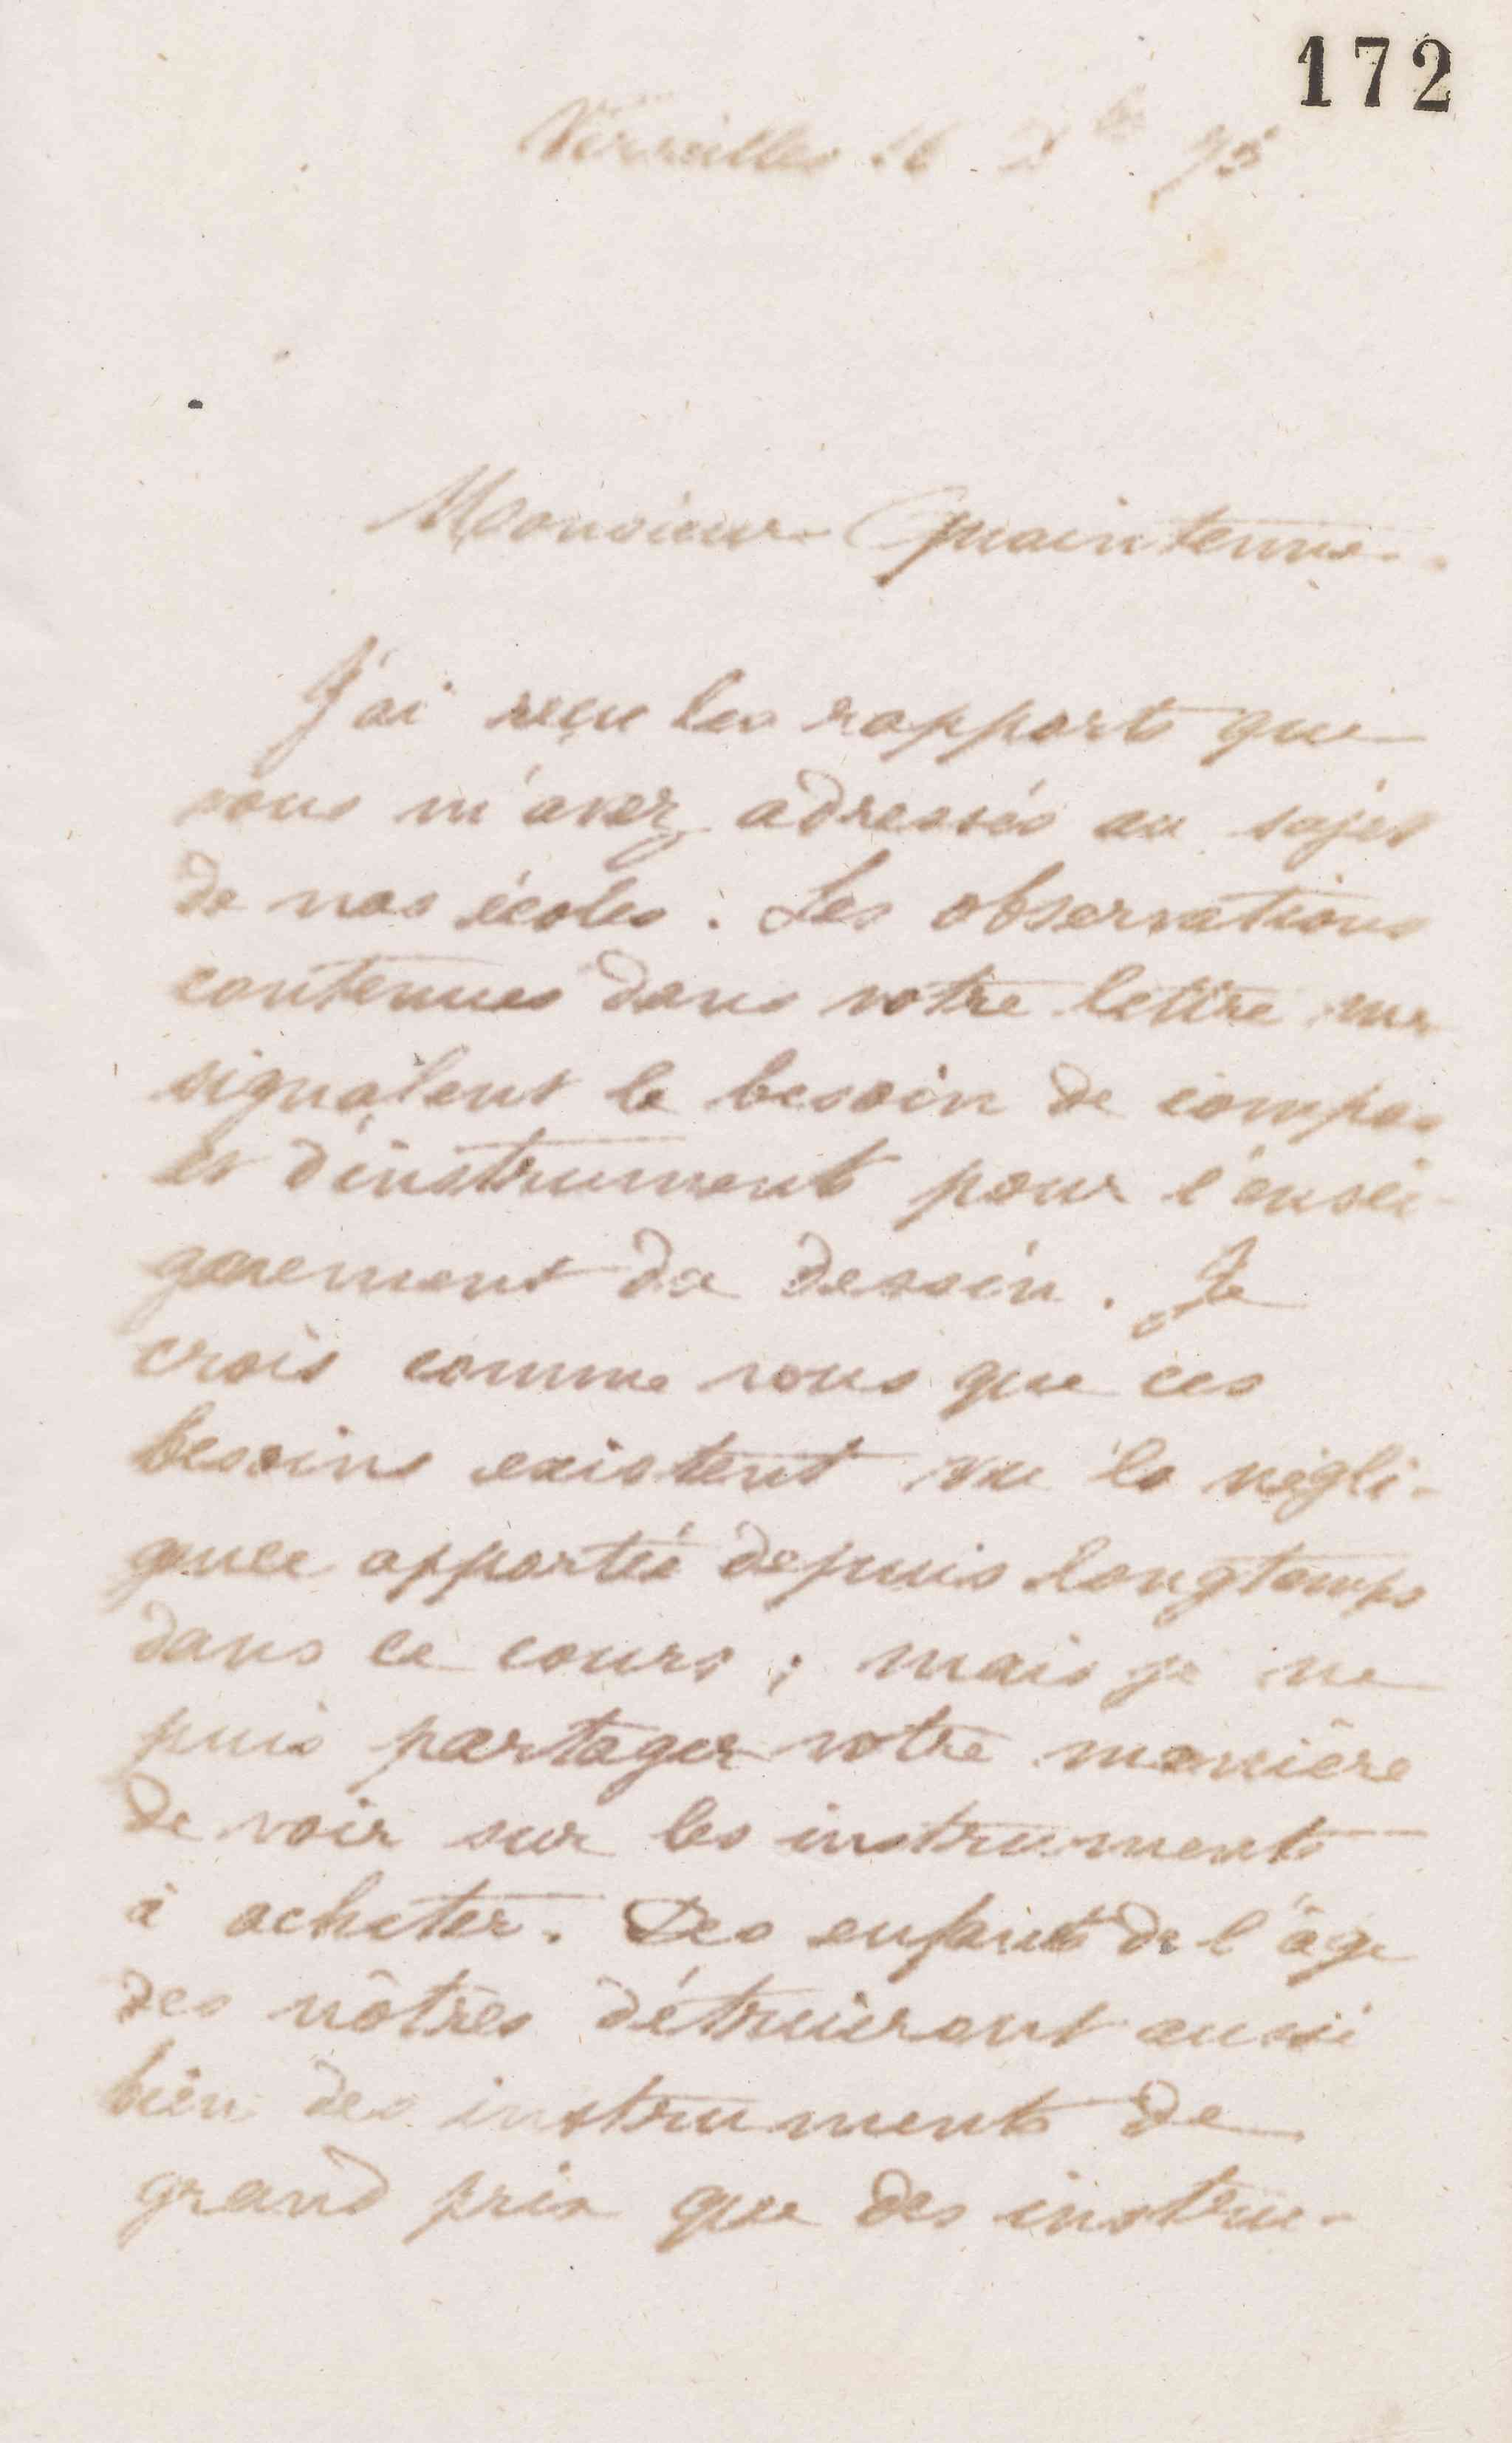 172
Versailles 16 Xbre 75
Monsieur Quaintenne
J'ai reçu les rapports que
vous m'avez adressés au sujet
de nos écoles. Les observations
contenues dans votre lettre me
signalent le besoin de compas
et d'instruments pour l'ensei-
gnement du dessin. Je
crois comme vous que ces
besoins existent vu la négli-
gence apportée depuis longtemps
dans ce cours ; mais je ne
puis partager votre manière
de voir sur les instruments
à acheter. Des enfants de l'âge
des nôtres détruieront aussi
bien des instruments de
grand prix que des instru-